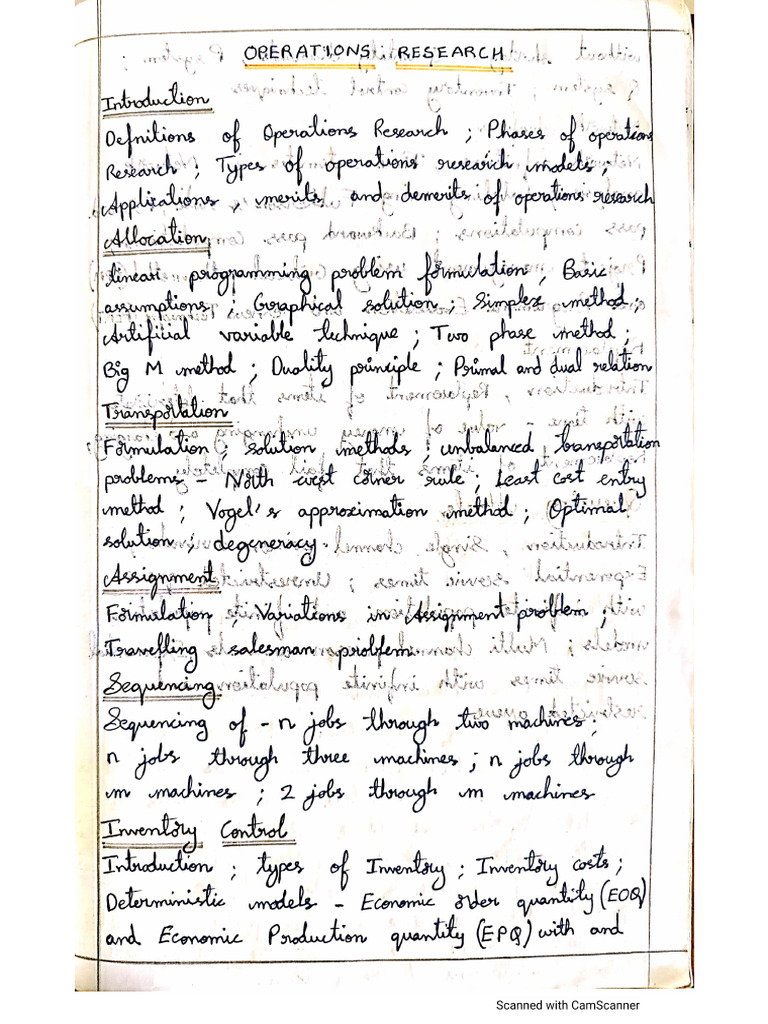 OPERATIONS RESEARCH
Introduction
Defnitions of Operations Research ; Phases of operations
Research ; Types of operations research models ;
Applications , merits and demerits of operations research
Allocation
linear programming problem formulation , Basic
assumptions ; Graphical solution ; Simplex method ;
Artificial variable technique ; Two phase method ;
Big M method ; Duality principle ; Primal and dual relation
Transportation
Formulation ; solution methods ; unbalanced transportation
problems - North west corner rule ; Least cost entry
method ; Vogel's approximation method ; Optimal
solution ; degeneracy.
Assignment
Formulation ; Variations in Assignment problem ;
Travelling salesman problem
Sequencing
Sequencing of - n jobs through two machines ;
n jobs through three machines ; n jobs through
m machines ; 2 jobs through m machines
Inventory Control
Introduction ; types of Inventory ; Inventory costs ;
Deterministic models - Economic order quantity (EOQ)
and Economic Production quantity (EPQ) with and
Scanned with CamScanner